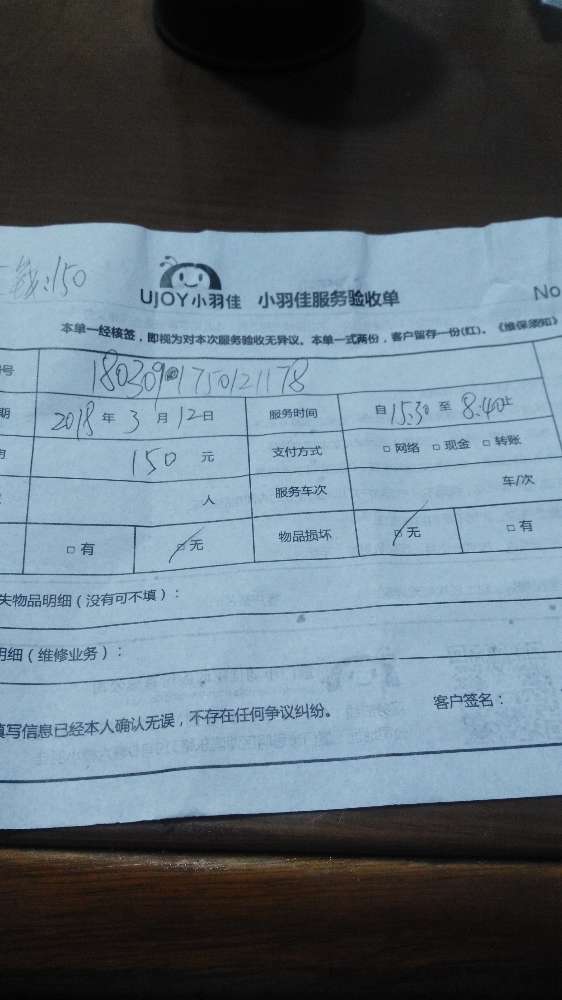 钱:150
UJOY小羽佳 小羽佳服务验收单
No
本单一经核签，即视为对本次服务验收无异议。本单一式两份，客户留存一份(红)。《维保须知》
号 1803091750121178
期 2018 年 3 月 12 日 服务时间 自 15:30 至 8:40止
150 元 支付方式 □ 网络 □ 现金 □ 转账
人 服务车次 车/次
□ 有 □ 无 物品损坏 □ 无 □ 有
失物品明细（没有可不填）：
明细（维修业务）：
填写信息已经本人确认无误，不存在任何争议纠纷。 客户签名：